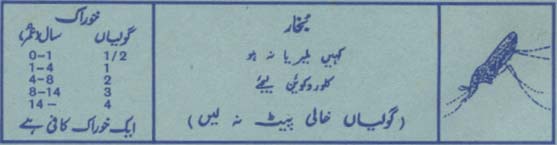 بُخار
کہیں ملیریا نہ ہو
کلوروکوئین لیجئے
(گولیاں خالی پیٹ نہ لیں)
خوراک
سال (عمر) گولیاں
0-1 1/2
1-4 1
4-8 2
8-14 3
14- 4
ایک خوراک کافی ہے